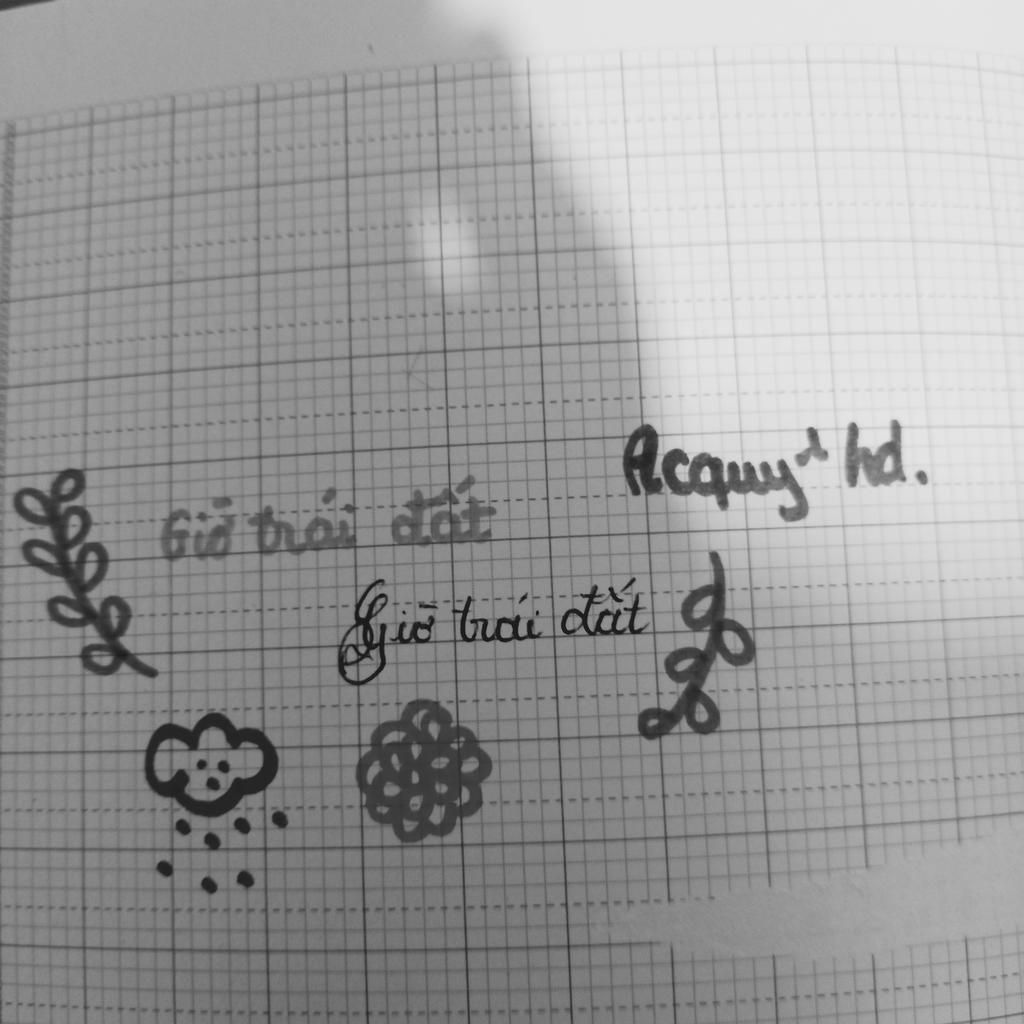 Acquy hd.
Giờ trái đất
Giờ trái đất